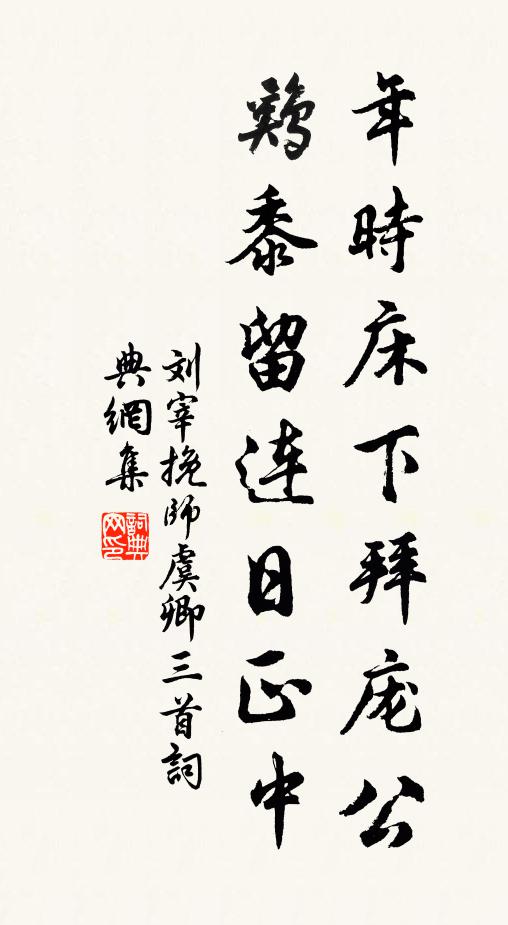 年時床下拜庞公
鷄黍留連日正中
刘宰挽師虞卿三首詞
典網集
詞典
网印